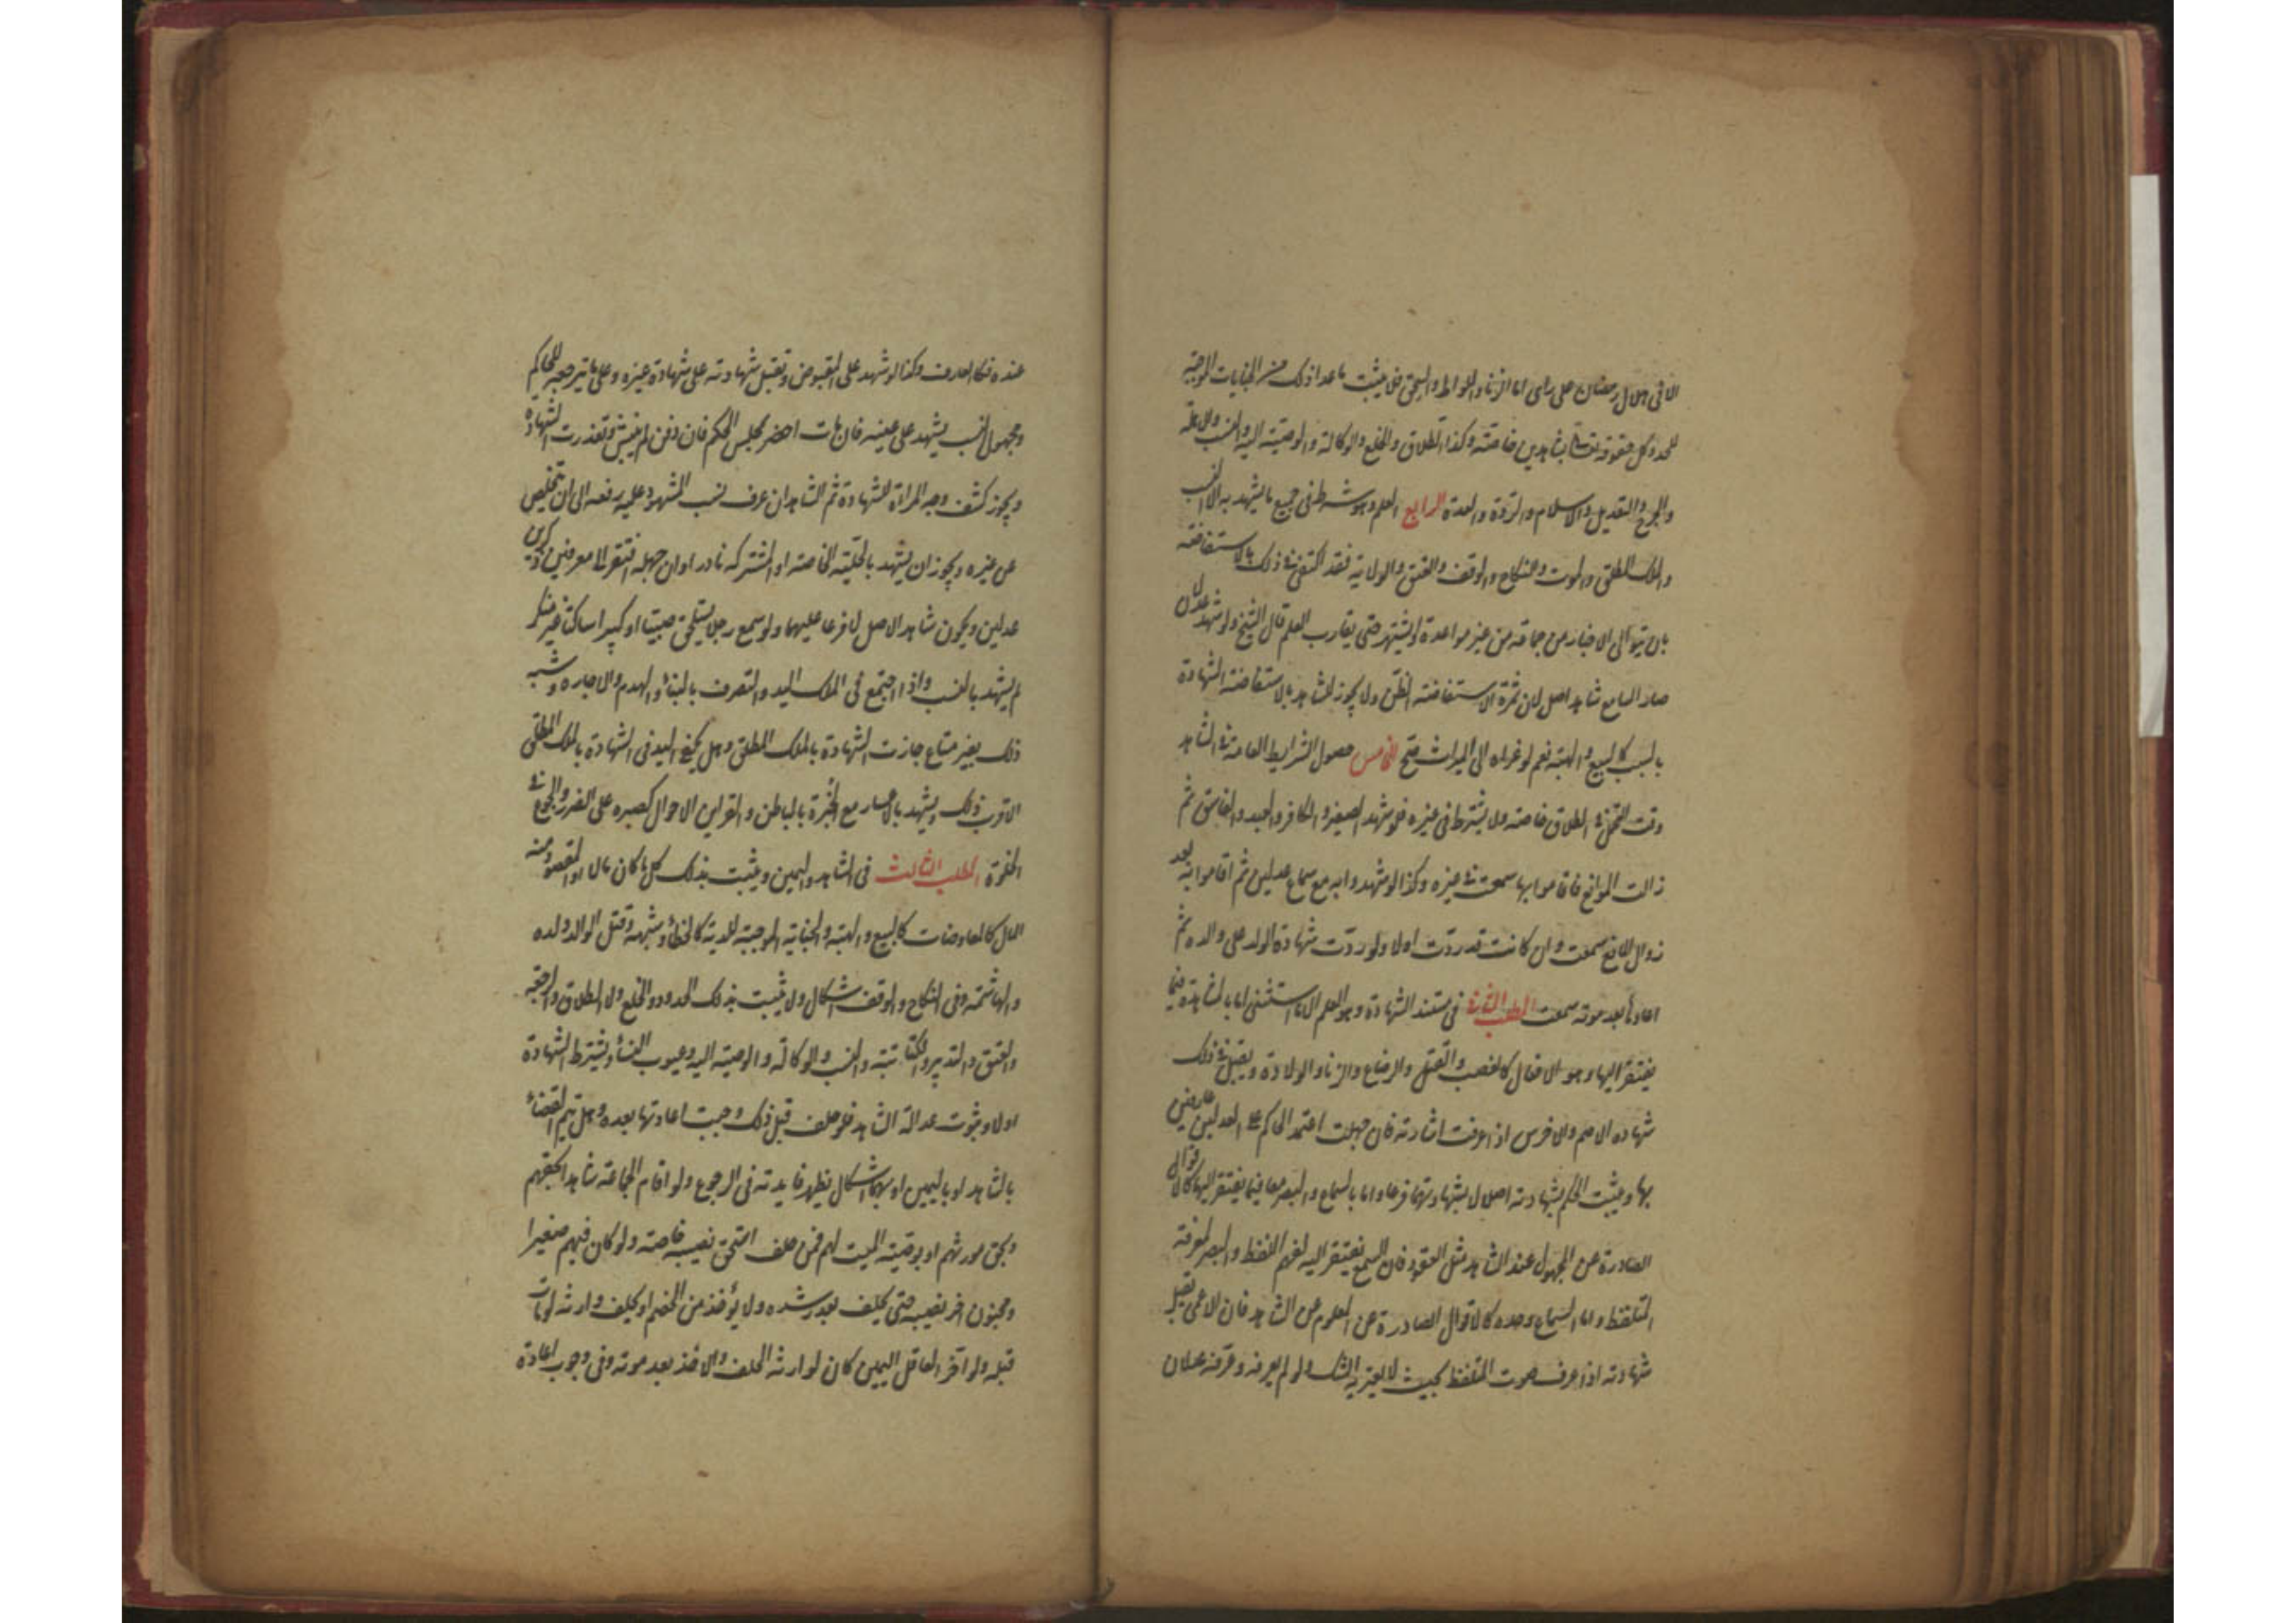 الا فى هلال رمضان على راى اما الزنا واللواط والسحق فلا يثبت ما عدا ذلك من الجنايات الموجبة
للحد وكل حقوقه تعالى بشاهدين خاصة وكذا الطلاق والخلع والوكالة والوصية اليه والنسب والاهلة
والجرح والتعديل والاسلام والردة والعدة الرابع العلم وهو شرط فى جميع ما يشهد به الا النسب
والملك المطلق والموت والنكاح والوقف والعتق والولاية فقد اكتفى فى ذلك بالاستفاضة
بان يتوالى الاخبار من جماعة من غير مواعدة او يشتهر حتى يقارب العلم قال الشيخ ولو شهد عدلان
صار السامع شاهد اصل لان ثمرة الاستفاضة الظن ولا يجوز للشاهد بالاستفاضة الشهادة
بالسبب كالبيع والهبة نعم لو عزاه الى الميراث صح الخامس حصول الشرايط العامة فى الشاهد
وقت التحمل فى الطلاق خاصة ولا يشترط فى غيره فلو شهد الصغير والكافر والعبد والفاسق ثم
زالت الموانع فاقاموا بها سمعت فى غيره وكذا لو شهدوا به مع سماع عدلين ثم اقاموا به بعد
زوال المانع سمعت وان كانت قد ردت اولا ولو ردت شهادة الولد على والده ثم
اعادها بعد موته سمعت المطلب الثانى فى مستند الشهادة وهو العلم الا ما استثنى اما بالمشاهدة فيما
يفتقر اليها وهو الافعال كالغصب والقتل والرضاع والزنا والولادة ويقبل فى ذلك
شهادة الاصم والاخرس اذا عرفت اشارته فان جهلت اعتمد الحاكم على العدلين عارفين
بها ويثبت الحكم بشهادته اصلا لا بشهادتهما فرعا واما بالسماع والبصر معا فيما يفتقر اليهما كالاقوال
الصادرة عن المجهول عند الشاهد مثل العقود فان السمع يفتقر اليه لفهم اللفظ والبصر لمعرفة
المتلفظ واما السماع وحده كالاقوال الصادرة عن المعلوم عن الشاهد فان الاعمى تقبل
شهادته اذا عرف صوت المتلفظ بحيث لا يعتريه الشك ولو لم يعرفه وعرفه عدلان
عنده فكالعارف وكذا لو شهد على المقبوض وتقبل شهادته على شهادة غيره وعلى ما يترجمه للحاكم
ومجهول النسب يشهد على عينه فان مات احضر مجلس الحكم فان دفن لم ينبش وتعذرت الشهادة
ويجوز كشف وجه المراة للشهادة ثم الشاهد ان عرف نسب المشهود عليه رفعه الى ان يتخلص
عن غيره ويجوز ان يشهد بالحلية الخاصة او المشتركة نادرا وان جهله افتقر الى معرفين ذكرين
عدلين ويكون شاهد الاصل لا فرعا عليهما ولو سمع رجلا يستلحق صبيا او كبيرا ساكتا غير منكر
لم يشهد بالنسب واذا اجتمع فى الملك اليد والتصرف بالبناء والهدم والاجارة وشبه
ذلك بغير منازع جازت الشهادة بالملك المطلق وهل يكفى اليد فى الشهادة بالملك المطلق
الاقرب ذلك ويشهد بالاعسار مع الخبرة بالباطن والقراين الاحوال كصبره على الضر والجوع فى
الخلوة المطلب الثالث فى الشاهد واليمين ويثبت بذلك كل ما كان مالا او المقصود منه
المال كالمعاوضات كالبيع والهبة والجناية الموجبة للدية كالخطأ وشبهه وقتل الوالد ولده
والهاشمة وفى النكاح والوقف اشكال ولا يثبت بذلك الحدود والخلع ولا الطلاق والرجعة
والعتق والتدبير والكتابة والنسب والوكالة والوصية اليه وعيوب النساء ويشترط الشهادة
اولا وثبوت عدالة الشاهد فلو حلف قبل ذلك وجبت اعادتها بعده وهل يتم القضاء
بالشاهد او باليمين او بهما اشكال يظهر فايدته فى الرجوع ولو اقام الجماعة شاهدا بحقهم
وبحق مورثهم او بوصية الميت لهم فمن حلف استحق نصيبه خاصة ولو كان فيهم صغيرا
ومجنون اخر نصيبه حتى يحلف بعد رشده ولا يؤخذ من الخصم او يحلف وارثه لو مات
قبله ولو اخر العاقل اليمين كان لوارثه الحلف والاخذ بعد موته وفى وجوب اعادة